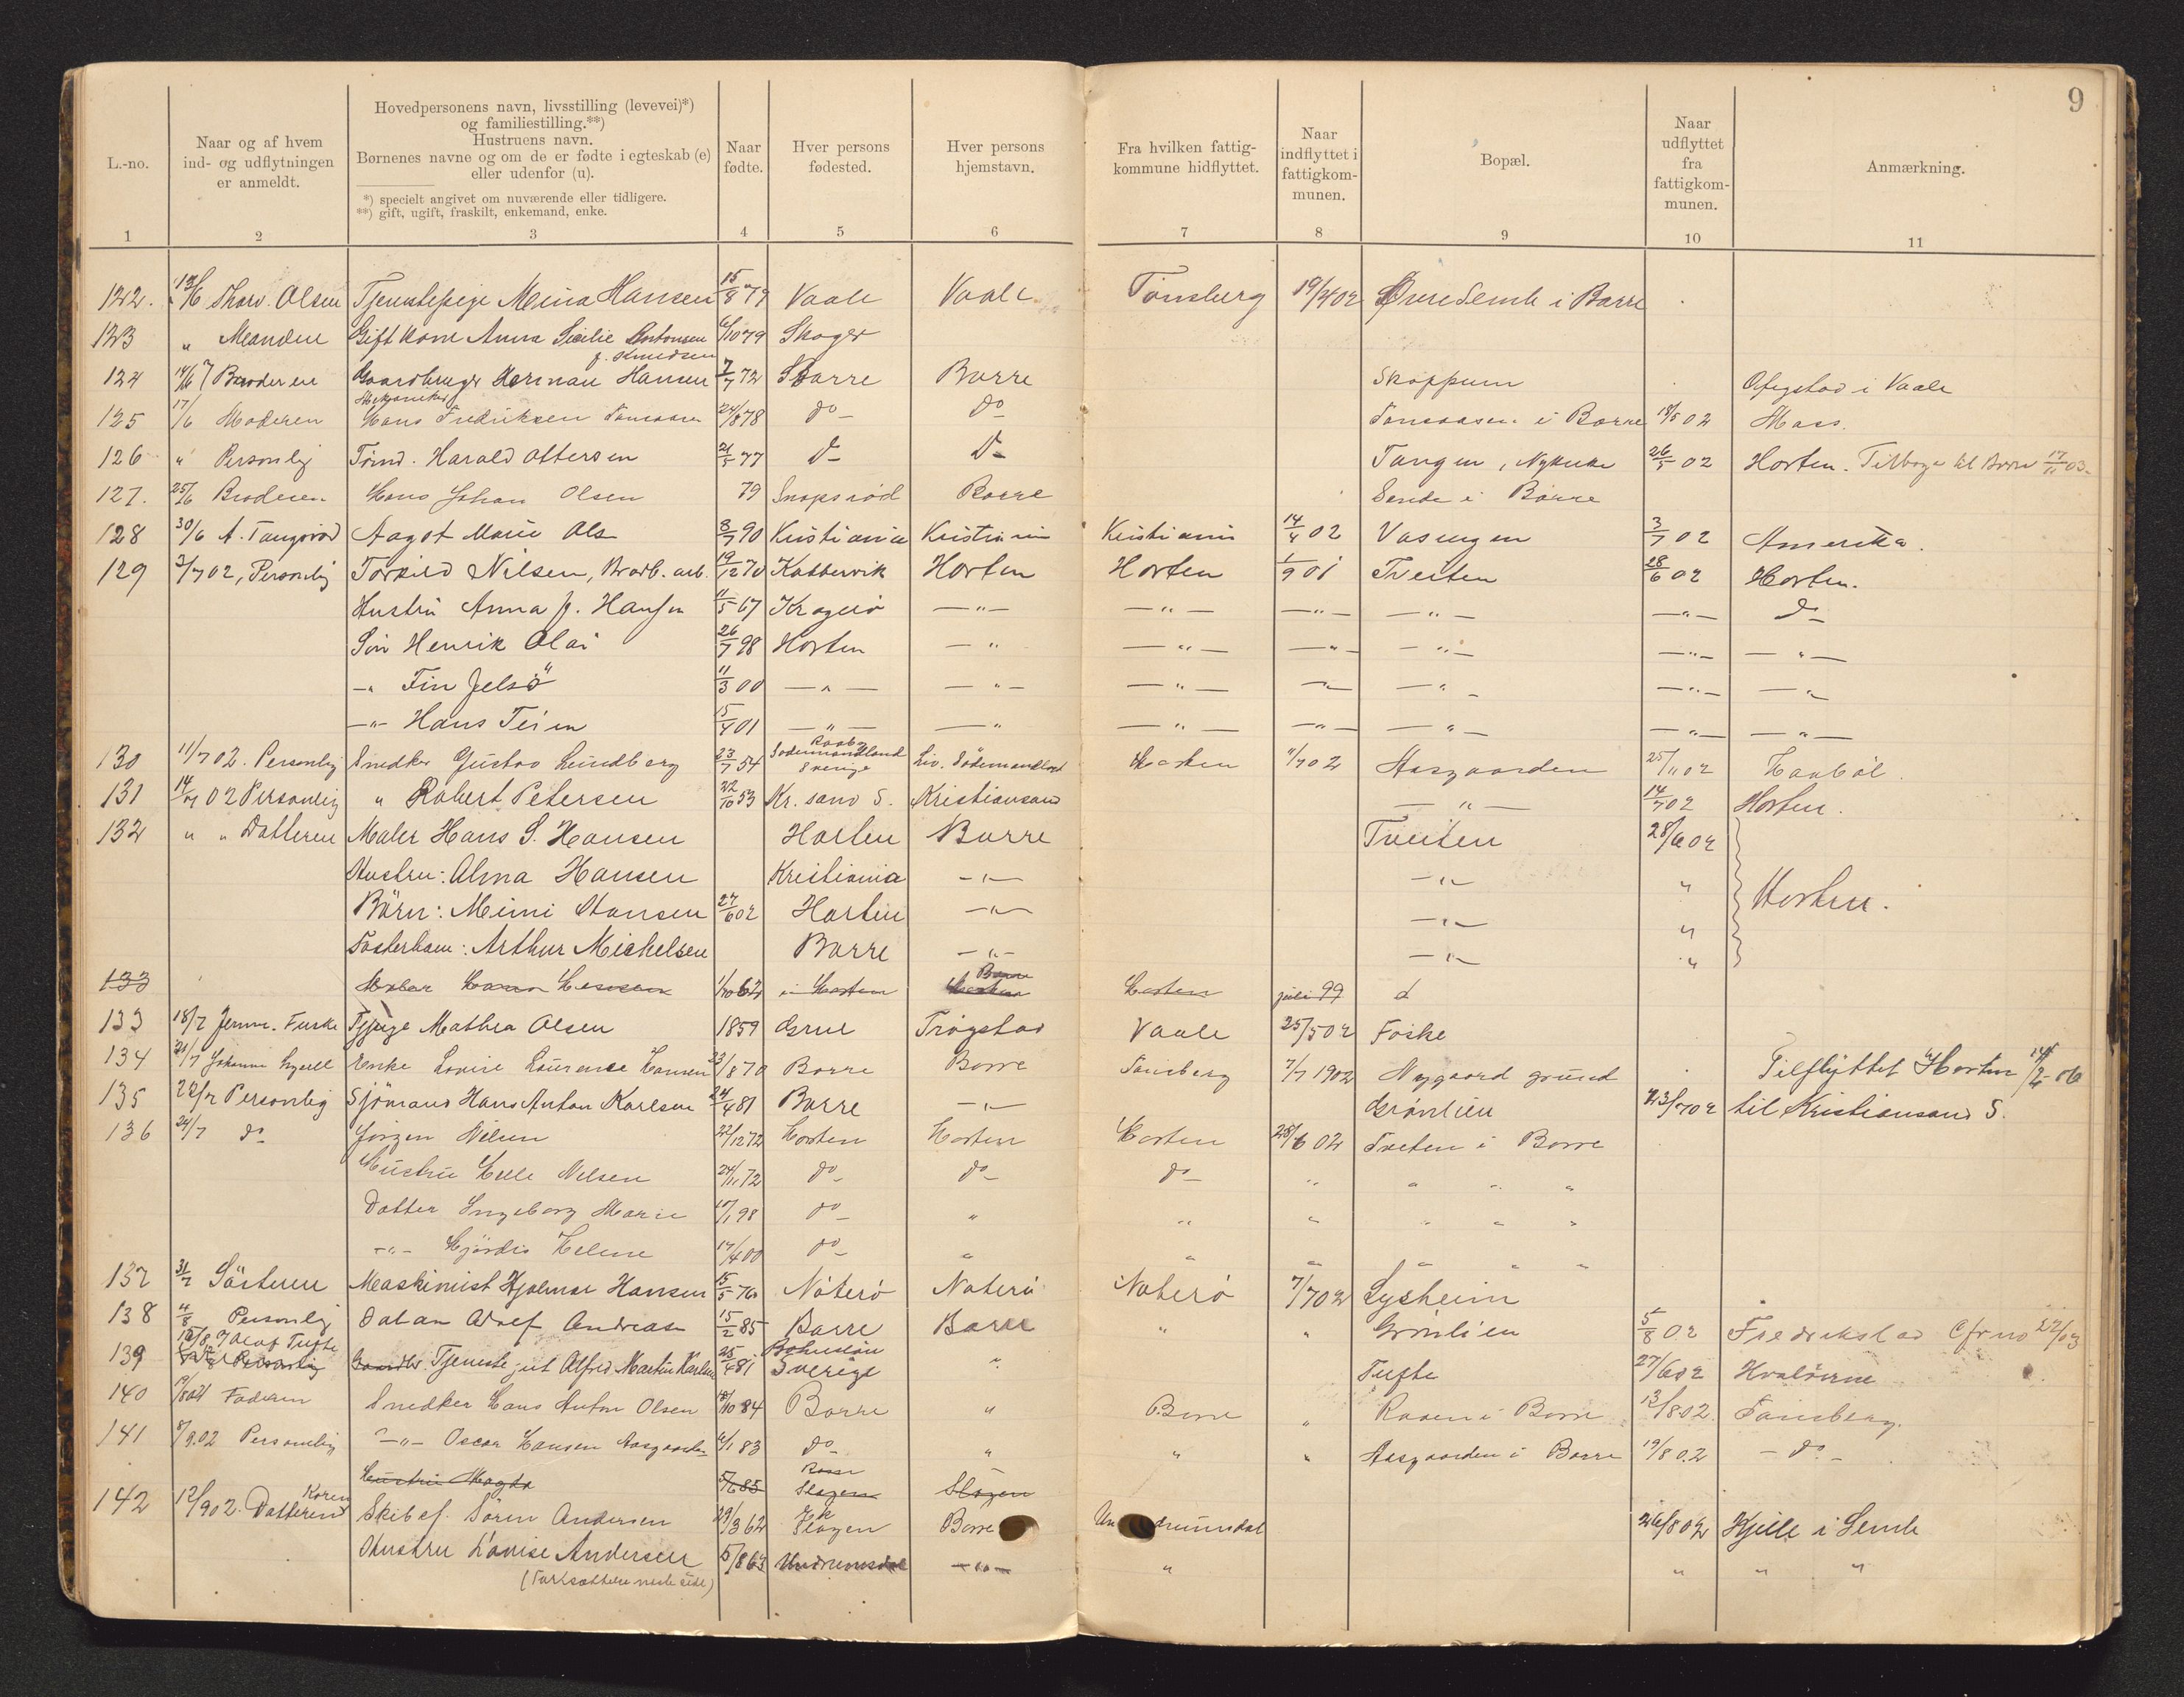 9
L.-no.
Naar og af hvem
ind- og udflytningen
er anmeldt.
Hovedpersonens navn, livsstilling (levevei)*)
og familiestilling.**)
Hustruens navn.
Børnenes navne og om de er fødte i egteskab (e)
eller udenfor (u).
*) specielt angivet om nuværende eller tidligere.
**) gift, ugift, fraskilt, enkemand, enke.
Naar
fødte.
Hver persons
fødested.
Hver persons
hjemstavn.
Fra hvilken fattig-
kommune hidflyttet.
Naar
indflyttet i
fattigkom-
munen.
Bopæl.
Naar
udflyttet
fra
fattigkom-
munen.
Anmærkning.
1 2 3 4 5 6 7 8 9 10 11
122. Thorv. Olsen Tjenestepige Mina Hansen 15/8 79 Vaale Vaale Tønsberg 19/4 02 Øvre Semb i Borre
123 " Manden Gift kone Anna Sicilie Antonsen 6/10 79 Skoger
f. Knudsen
124 14/6 Broderen Gaardbruger Herman Hansen 7/7 72 Borre Borre Skoppum Ofegstad i Vaale
Mekaniker
125 17/6 Moderen Hans Fredriksen 24/8 78 do do i Borre 18/5 02 Moss.
126 " Personlig Tømd. Harald Ottersen 21/5 77 do do Tangen, Nykirke 26/5 02 Horten. Tilbage til Borre 17/11 03.
127. 25/6 Broderen Hans Johan Olsen 79 Snapsrød Borre Sende i Borre
128 30/6 A. Tangsrød Aagot Marie Ols 8/7 90 Kristiania Kristiania Kristiania 14/4 02 Vasengen 3/7 02 Amerika.
129 3/7 02, Personlig Torkild Nilsen, arb. 19/12 70 Kabbervik Horten Horten 1/9 01 Treiten 28/6 02 Horten.
Hustru Anna f. Hansen 11/5 67 Kragerø -"- -"- -"- -"- -"- do
Søn Henrik Olai 26/7 98 Horten -" -"- -"- -"- -"- -"-
-" Fin Jelsø 11/3 00 -"- -"- -"- -"- -"- -"- -"-
-"- Hans Teien 15/4 01 -"- -" -"- -"- -"- -"- -"-
130 11/7 02. Personlig Snedker Gustav Lundberg 23/7 54 Södermandland Sverige Liv. Södermanland Horten 11/7 02 Aasgaarden 25/11 02 Haabøl.
131 14/7 02 Personlig " Robert Petersen 22/10 53 Kr. sand S. Kristiansand -"- 14/7 02 Horten.
132 " " Datteren Maler Hans S. Hansen Horten Borre Treiten 28/6 02
Hustru: Alma Hansen Kristiania -"- -"- "
Børn: Mimi Hansen 27/6 02 Horten -"- -"- " Horten.
Fosterbarn: Arthur Michelsen Borre -"- -"- "
133 Maler Hans Hansen 1/10 62 i Horten Borre Horten Horten juli 99
133 18/7 Tjpige Mathea Olsen 1859 Grue Trøgstad Vaale 25/5 02 Foske
134 21/7 Johanne Enke Lovise Laurence Hansen 23/8 70 Borre Borre Tønsberg 7/7 1902 Nygaard grund Tilflyttet Horten 14/4-06
135 22/7 Personlig Sjömand Hans Anton Karlsen 24/4 81 Borre -"- Grønlien 23/7 02 til Kristiansand S.
136 24/7 do Jørgen Nilsen 22/12 72 Horten Horten Horten 28/6 02 Treten i Borre
Hustru Helle Nilsen 24/11 72 do do do " " " "
Datter Ingeborg Marie 15/1 98 do " " " " " "
-"- Hjørdis Helene 17/4 00 do " " " " "
137 31/7 Søsteren Maskinist Hjalmar Hansen 15/5 76 Nøterø Nøterø Nøterø 7/7 02 Lysheim
138 4/8 Personlig Adolf Andreas 15/2 85 Borre Borre " " Grønlien 5/8 02 Fredrikstad Cfr no 22/03
139 Olaf Tufte Personlig Tjenestejut Alfred Martin Karlsen 25/4 81 Bohuslän Sverige " Tufte 27/6 02 Hvaløerne
140 Faderen Snedker Hans Anton Olsen 18/10 84 Borre " Borre " Raaen i Borre 13/8 02. Tønsberg.
141 8/9.02 Personlig -"- Oscar Hansen Aasgaarden 6/1 83 do " " " Aasgaarden i Borre 19/8 0.2 - do -
Hustru Magda 5/6 85 Borre Slagen Slagen
142 12/9 02. Datteren Karen Skibsf. Sören Andersen 29/3 62 Ek Slagen Borre Undrumsdal 26/8 02 Hjelle i Semb
Hustru Lovise Andersen 5/8 63 Undrumsdal -"- " " " "
(Fortsættelse neste side)